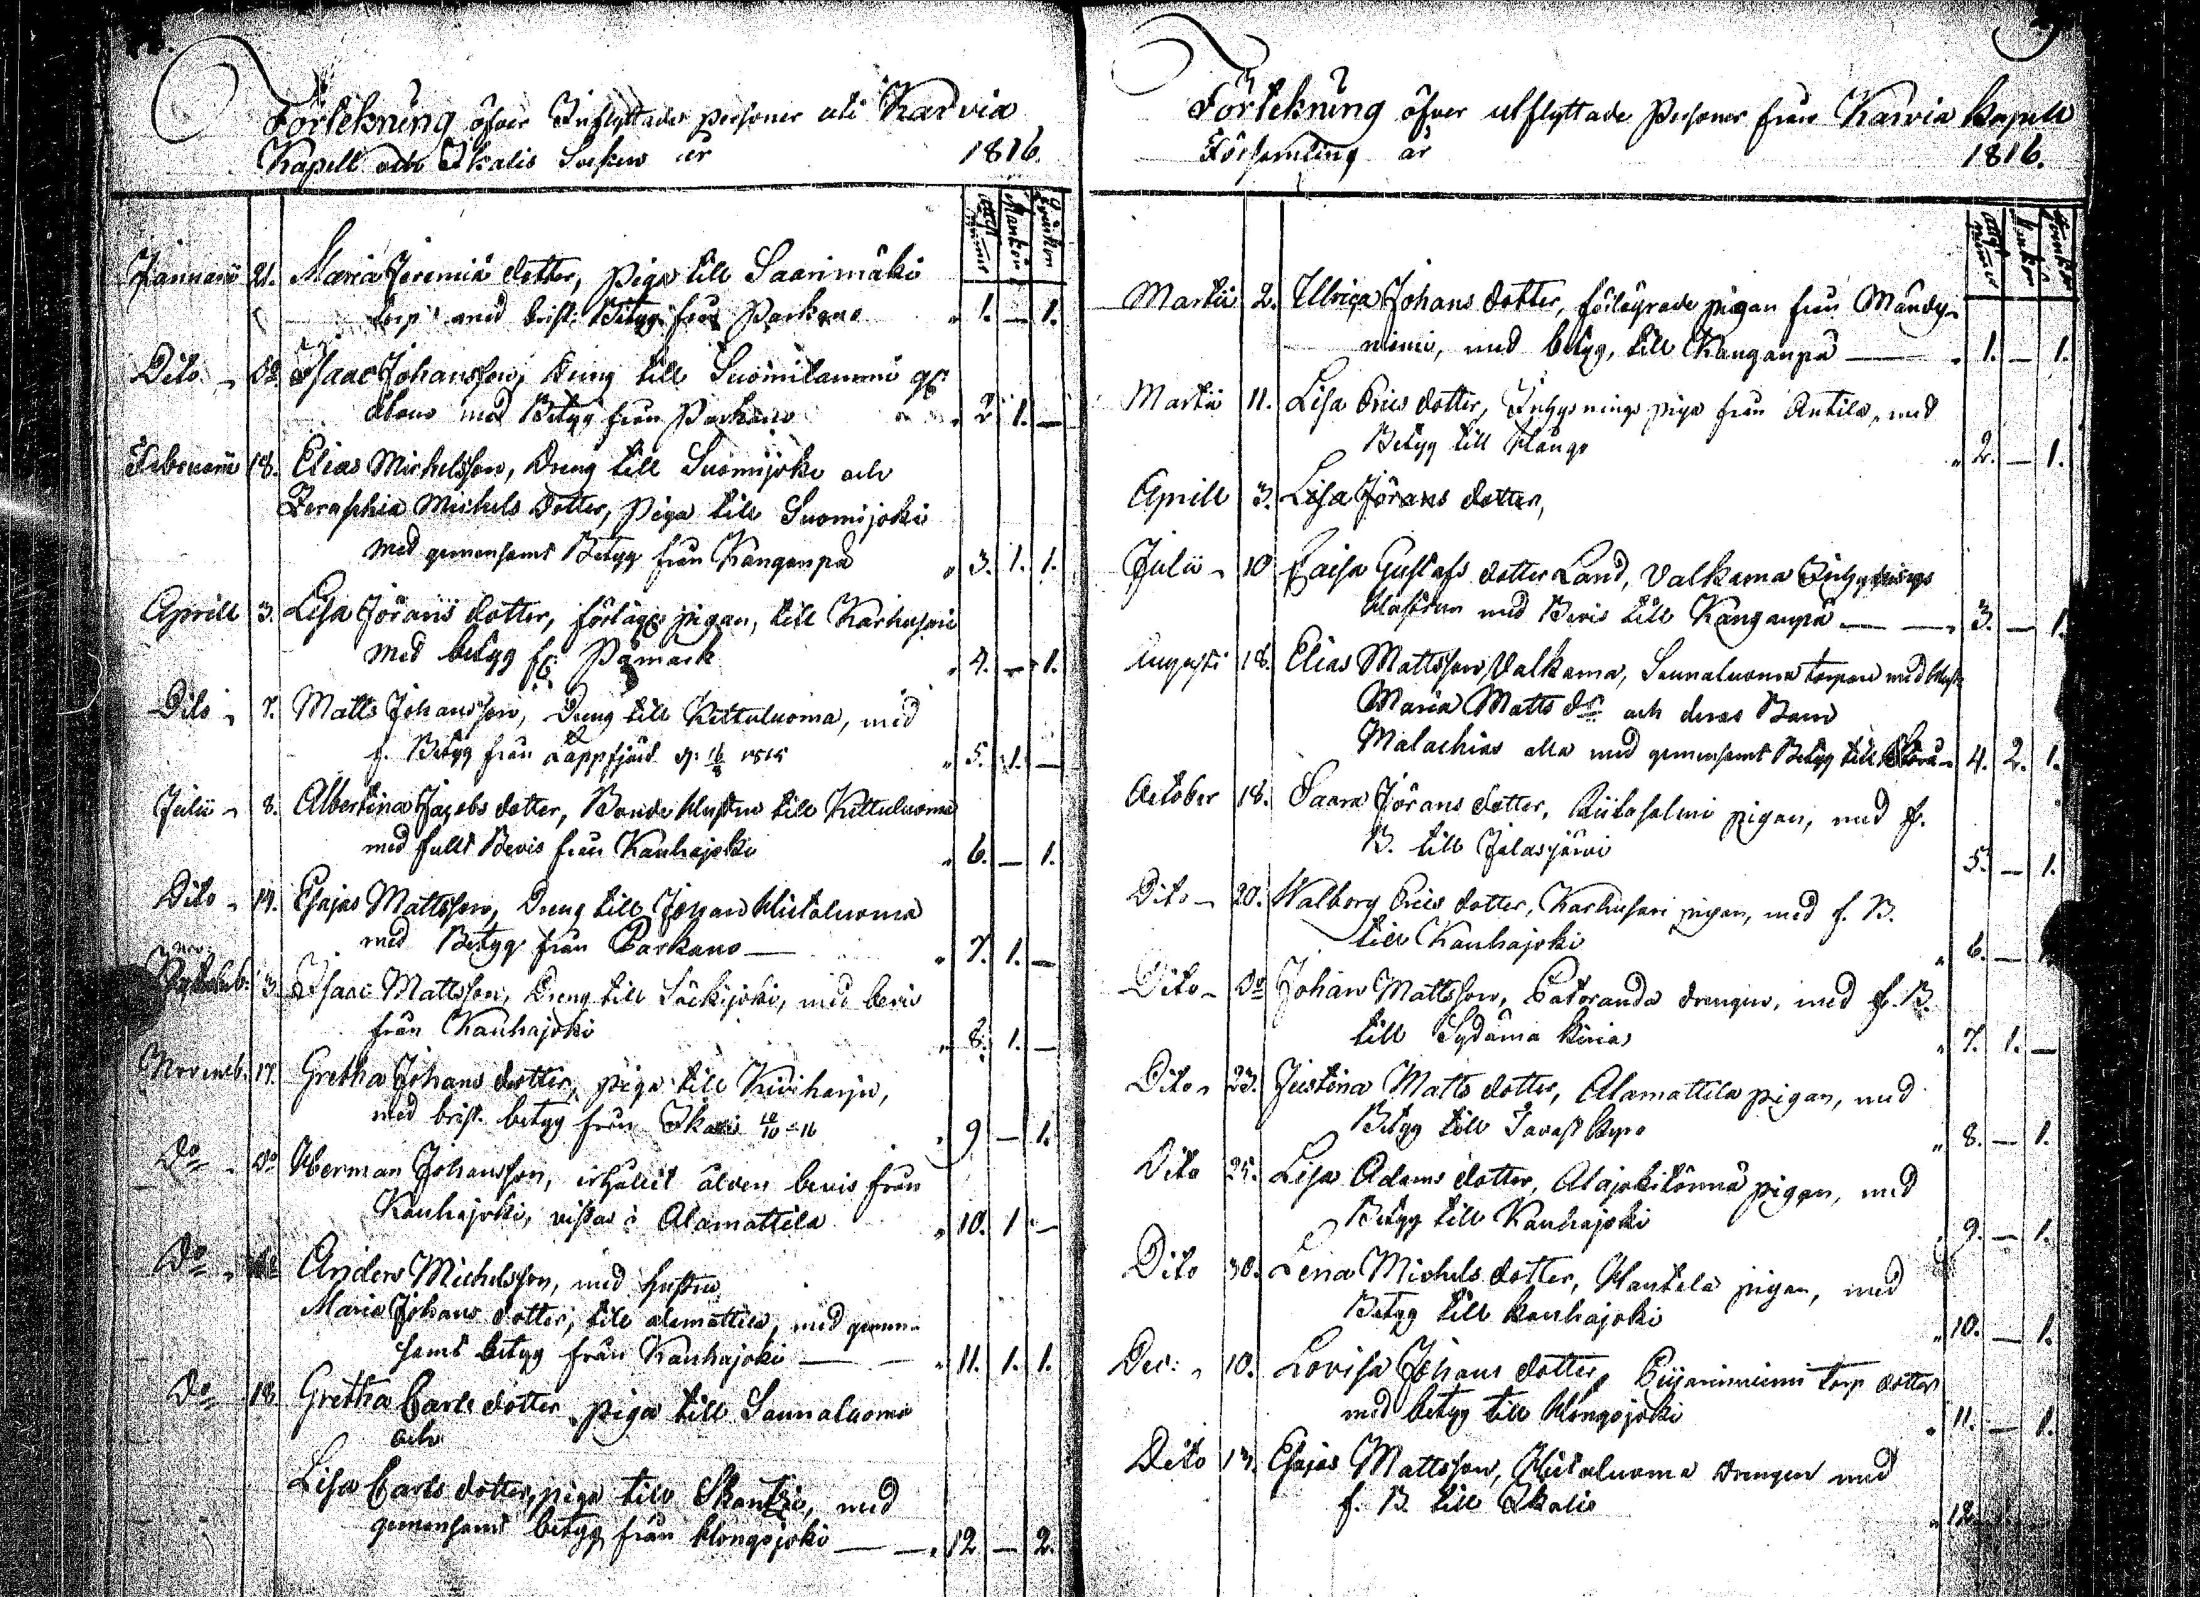 Förtekning öfver Inflyttade personer uti Karvia
Kapell och Ikalis Socken år 1816.
Attest Numer Mankön Qvinkön
Januarii 21. Maria Jeremiæ dotter, piga till Saarimäki
torp med brist. Betyg från Parkano " 1. — 1.
Dito " Do Isaac Johansson, Dreng till Suomilammi
med Betyg från Parkano " 2. 1. —
Februarii 18. Elias Michelsson, Dreng till Suomijoki och
Seraphia Michels dotter, piga till Suomijoki
med gemensamt Betyg från Kanganpä " 3. 1. 1.
Aprill 3. Lisa Jörans dotter, förläg. pigan, till Karhusari
med betyg fr. Påmark " 4. — 1.
Dito " 7. Matts Johansson, Dreng till Kettuluoma, med
f. Betyg från Lappfjärd 1815 " 5. 1. —
Julii " 8. Albertina Jacobs dotter, Bonde Hustru till Kettuluoma
med fullt Bevis från Kauhajoki " 6. — 1.
Dito " 14. Esajas Mattsson, Dreng till Johan Hietaluoma
med Betyg från Parkano — " 7. 1. —
3. Isaac Mattsson, Dreng till Säckijoki, med bevis
från Kauhajoki " 8. 1. —
Novemb. 17. Gretha Johans dotter, piga till Kiviharju,
med brist. betyg från Ikalis " 9 — 1.
Do " Do Herman Johansson, erhållit älven bevis från
Kauhajoki, vistas i Alamattila " 10. 1 —
Do " Do Anders Michelsson, med hustru
Maria Johans dotter, till alamattila, med gemen-
samt betyg från Kauhajoki — " 11. 1. 1.
Do 18 Gretha Carls dotter piga till Saunaluoma
och
Lisa Carls dotter, piga till Skantzi, med
gemensamt betyg från Hongojoki — " 12 — 2.
Förtekning öfver utflyttade Personer från Karvia Kapell
Församling år 1816.
Attest Numer Mankön Qvinkön
Martii 2. Ulrica Johans dotter, förlägrade pigan från Mändy-
niemi, med betyg, till Kanganpä — " 1. — 1.
Martii 11. Lisa Erics dotter, Inhysnings piga från Antila, med
Betyg till Hångo " 2. — 1.
Aprill 3. Lisa Jörans dotter,
Julii " 10 Caisa Gustafs dotter Land, Valkama Inhysnings
Hustrun med Bevis till Kanganpä — " 3. — 1.
Augusti 18. Elias Mattsson Valkama, Saunaluoma torparen med Hust.
Maria Matts dr och deras Barn
Malachias alla med gemensamt Betyg till Storå " 4. 2. 1.
October 18. Saara Jörans dotter, Riitasalmi pigan, med f.
B. till Jalasjärvi 5. — 1.
Dito " 20. Walborg Erics dotter, Karhusari pigan, med f. B.
till Kauhajoki " 6. —
Dito " Do Johan Mattsson, Patoranda drengen, med f. B.
till Sydäma kiria " 7. 1. —
Dito " 23. Justina Matts dotter, Alamattila pigan, med
Betyg till Tavast Kyro " 8. — 1.
Dito 25. Lisa Adams dotter, Alajokitörmä pigan, med
Betyg till Kauhajoki " 9. — 1.
Dito 30. Lena Michels dotter, Hautala pigan, med
Betyg till Kauhajoki " 10. — 1.
Dec: " 10. Lovisa Johans dotter, torp dotter
med betyg till Hongojoki " 11. — 1.
Dito 13. Esajas Mattsson, Hietaluoma drengen med
f. B till Ikalis " 12